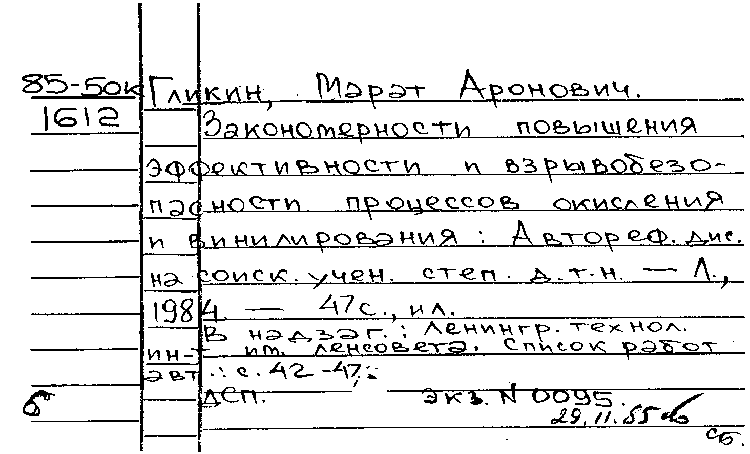 85-50к Гликин, Марат Аронович.
1612 Закономерности повышения
эффективности и взрывобезо-
пасности процессов окисления
и винилирования : Автореф. дис.
на соиск. учен. степ. д.т.н. — Л.,
1984. — 47с., ил.
В надзаг.: Ленингр. технол.
ин-т им. Ленсовета. Список работ
авт.: с. 42-47.
б ДСП. экз. N 0095.
29.11.85
сб.